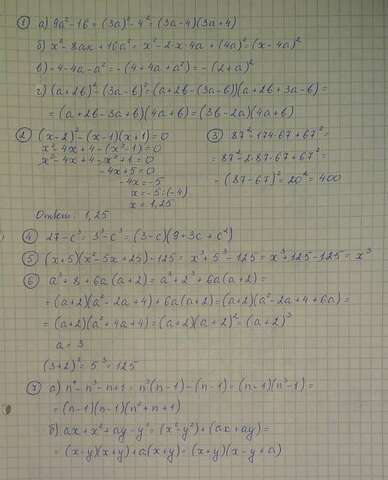 ① а) 9a² - 16 = (3a)² - 4² = (3a-4)(3a+4)
б) x² - 8ax + 16a² = x² - 2·x·4a + (4a)² = (x-4a)²
в) -4-4a-a² = -(4+4a+a²) = -(2+a)²
г) (a+2b)² - (3a-b)² = (a+2b-(3a-b))(a+2b+3a-b) =
= (a+2b-3a+b)(4a+b) = (3b-2a)(4a+b)
② (x-2)² - (x-1)(x+1) = 0
x² - 4x + 4 - (x²-1) = 0
x² - 4x + 4 - x² + 1 = 0
-4x + 5 = 0
-4x = -5
x = -5 : (-4)
x = 1,25
Ответ: 1,25
③ 87² - 174·67 + 67² =
= 87² - 2·87·67 + 67² =
= (87-67)² = 20² = 400
④ 27 - c³ = 3³ - c³ = (3-c)(9+3c+c²)
⑤ (x+5)(x²-5x+25) - 125 = x³ + 5³ - 125 = x³ + 125 - 125 = x³
⑥ a³ + 8 + 6a(a+2) = a³ + 2³ + 6a(a+2) =
= (a+2)(a²-2a+4) + 6a(a+2) = (a+2)(a²-2a+4+6a) =
= (a+2)(a²+4a+4) = (a+2)(a+2)² = (a+2)³
a = 3
(3+2)³ = 5³ = 125
⑦ а) n⁴ - n³ - n + 1 = n³(n-1) - (n-1) = (n-1)(n³-1) =
= (n-1)(n-1)(n²+n+1)
б) ax + x² + ay - y² = (x²-y²) + (ax+ay) =
= (x-y)(x+y) + a(x+y) = (x+y)(x-y+a)